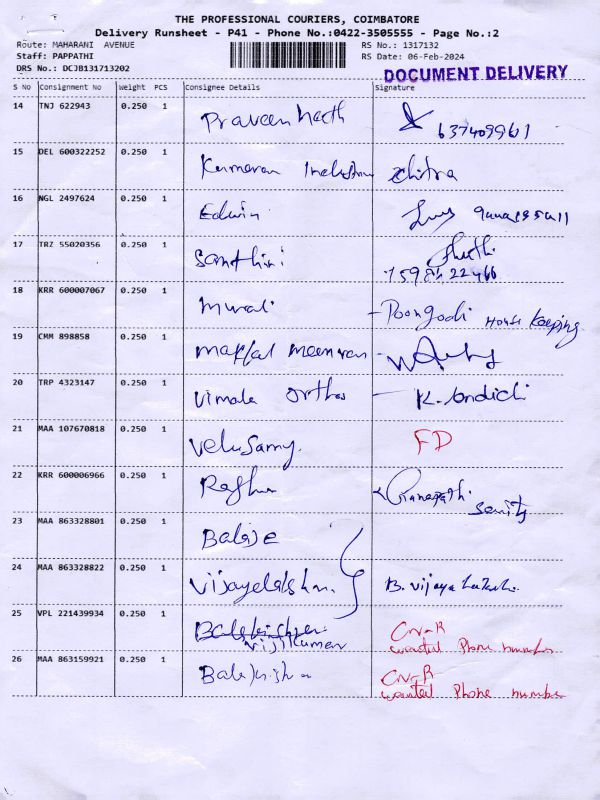 THE PROFESSIONAL COURIERS, COIMBATORE
Delivery Runsheet - P41 - Phone No.:0422-3505555 - Page No.:2
Route: MAHARANI AVENUE RS No.: 1317132
Staff: PAPPATHI RS Date: 06-Feb-2024
DRS No.: DCJB131713202
DOCUMENT DELIVERY
S No Consignment No Weight PCS Consignee Details Signature
14 TNJ 622943 0.250 1
6374099611
15 DEL 600322252 0.250 1 chitra
16 NGL 2497624 0.250 1 Edwin
17 TRZ 55020356 0.250 1
18 KRR 600007067 0.250 1 Murali - Poongodi House keeping
19 CMM 898858 0.250 1
20 TRP 4323147 0.250 1 Vimala Ortho
21 MAA 107670818 0.250 1 Velusamy. FD
22 KRR 600006966 0.250 1
23 MAA 863328801 0.250 1
24 MAA 863328822 0.250 1 B. Vijaya
25 VPL 221439934 0.250 1 Vijikumar
wanted Phone number
26 MAA 863159921 0.250 1
wanted Phone number